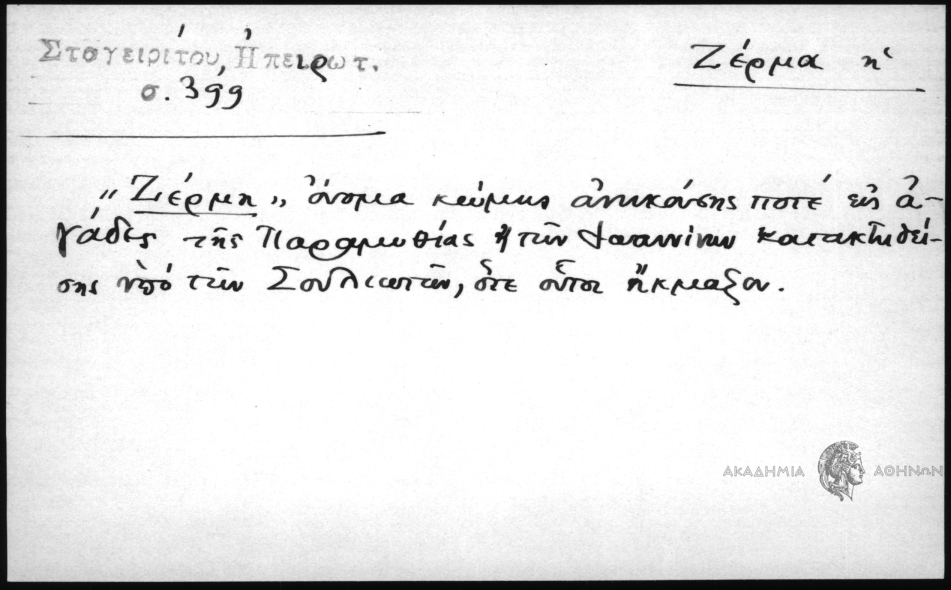 Σταγειρίτου, Ἠπειρωτ.
σ. 399
Ζέρμα ἡ
"Ζέρμη„ ὄνομα κώμης ἀνηκούσης ποτέ εἰς ἀ-
γάδες τῆς Παραμυθίας ἢ τῶν Ἰωαννίνων κατακτηθεί-
σης ὑπό τῶν Σουλιωτῶν, ὅτε οὗτοι ἤκμαζον.
ΑΚΑΔΗΜΙΑ ΑΘΗΝΩΝ